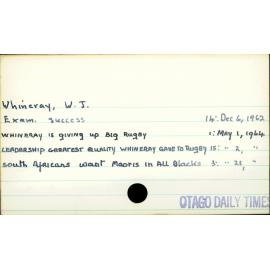 Whineray, W. J.
Exam. Success 14: Dec 6, 1962
WHINERAY IS GIVING UP BIG RUGBY 1: MAY 1, 1964
LEADERSHIP GREATEST QUALITY WHINERAY GAVE TO RUGBY 15: " 2, "
South Africans want Maoris in All Blacks 3: " 28, "
OTAGO DAILY TIMES